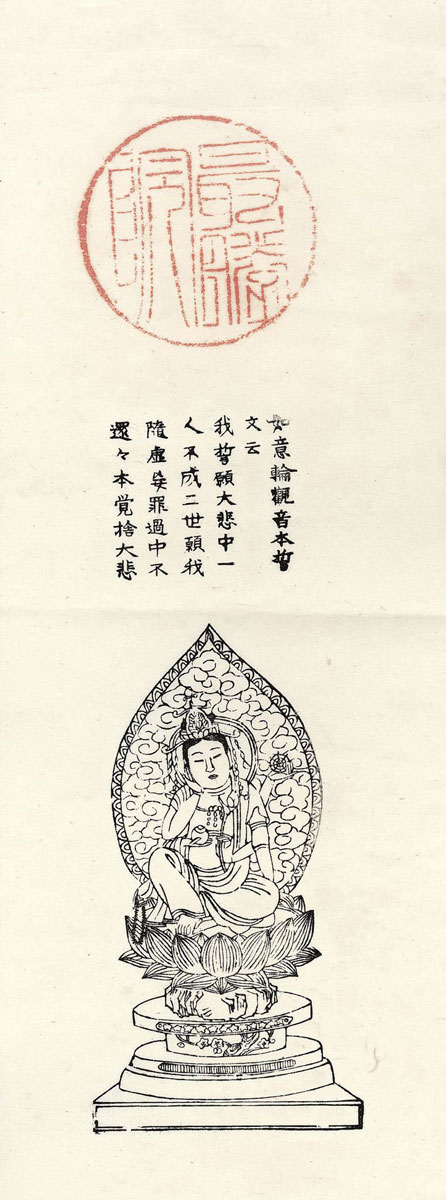 最勝院
如意輪觀音本誓
文云
我誓願大悲中一
人不成二世願我
隨虚妄罪過中不
還々本覚捨大悲